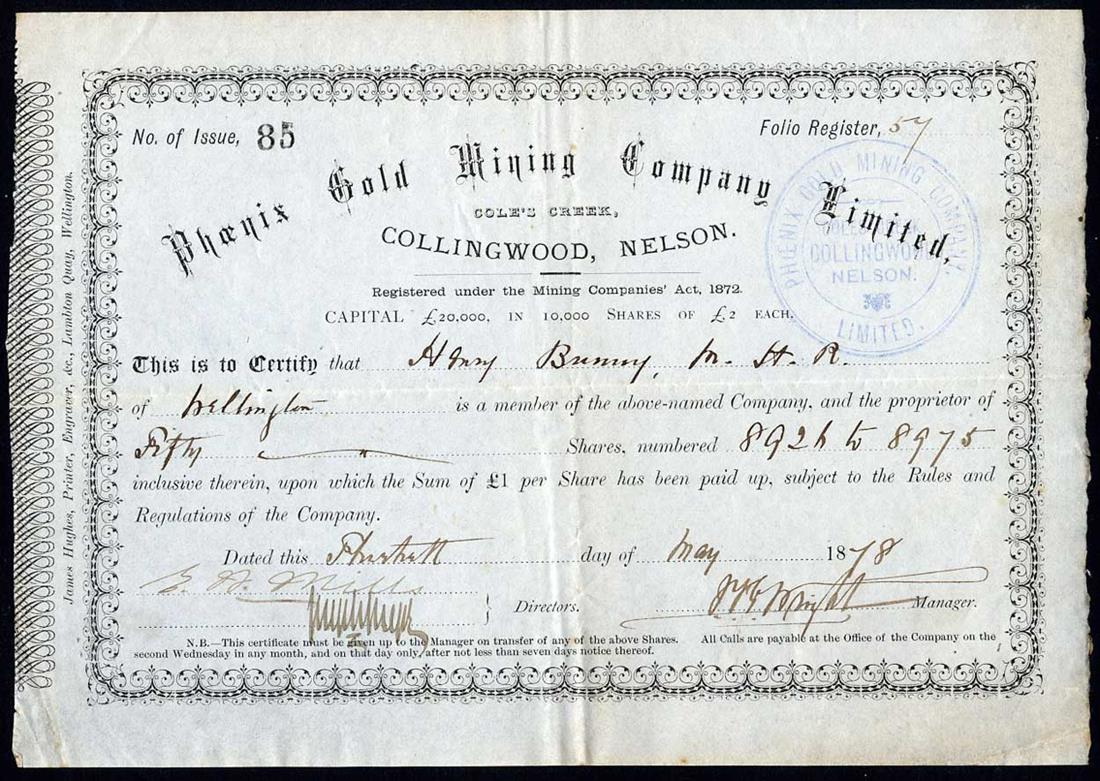 No. of Issue, 85
Folio Register, 57
Phœnix Gold Mining Company Limited,
COLE'S CREEK,
COLLINGWOOD, NELSON.
PHŒNIX GOLD MINING COMPANY
COLE'S CREEK
COLLINGWOOD
NELSON.
LIMITED.
Registered under the Mining Companies' Act, 1872.
CAPITAL £20,000, IN 10,000 SHARES OF £2 EACH.
This is to Certify that Henry Bunny, M. H. R.
of Wellington is a member of the above-named Company, and the proprietor of
Fifty Shares, numbered 8926 to 8975
inclusive therein, upon which the Sum of £1 per Share has been paid up, subject to the Rules and
Regulations of the Company.
Dated this day of May 1878
Mills
Directors. Wright Manager.
N.B.—This certificate must be given up to the Manager on transfer of any of the above Shares. All Calls are payable at the Office of the Company on the
second Wednesday in any month, and on that day only, after not less than seven days notice thereof.
James Hughes, Printer, Engraver, &c., Lambton Quay, Wellington.